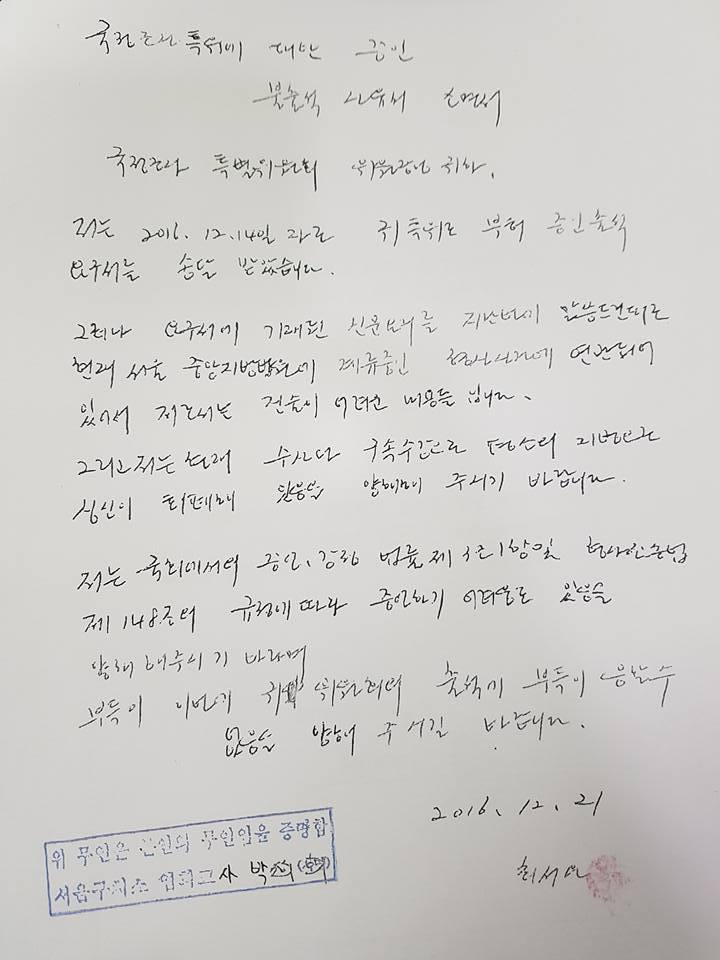 국정조사 특위에 대한 증인
불출석 사유서 소명서
국정조사 특별위원회 위원장님 귀하.
저는 2016. 12.14일 자로 귀 특위로 부터 증인출석
요구서를 송달 받았습니다.
그러나 요구서에 기재된 신문요지를 지난번에 말씀드린대로
현재 서울 중앙지방법원에 계류중인 형사사건에 연관되어
있어서 저로서는 진술이 어려운 내용들 입니다.
그리고 저는 현재 수사와 구속수감으로 평소의 지병으로
심신이 피폐해 있음을 양해해 주시기 바랍니다.
저는 국회에서의 증언, 감정 법률 제 3조 1항 및 형사소송법
제 148조의 규정에 따라 증언하기 어려움도 있음을
양해 해주시기 바라며
부득이 이번 귀 위원회의 출석에 부득이 응할수
없음을 양해 주시길 바랍니다.
2016. 12. 21
최서원
위 무인은 본인의 무인임을 증명함
서울구치소 교 사 박